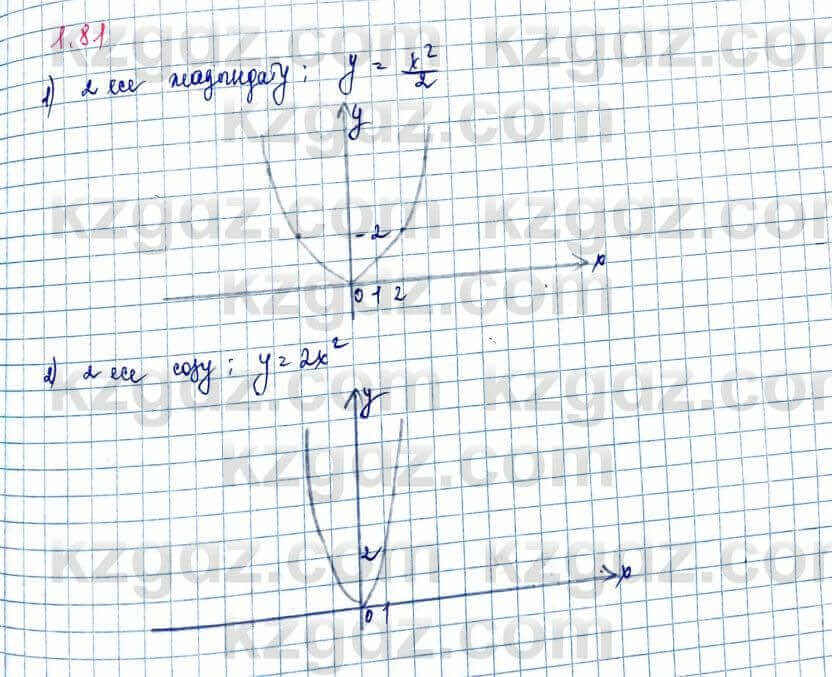 1.81
1) 2 есе жадпидату: y = x²/2
y
2
x
0 1 2
2) 2 есе созу: y = 2x²
y
2
x
0 1
kzgdz.com